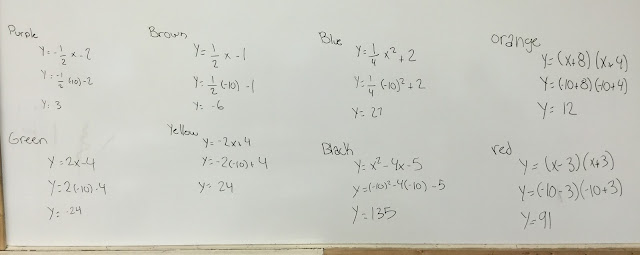 Purple
y = -1/2 x - 2
y = -1/2 (-10) - 2
y = 3
Brown
y = 1/2 x - 1
y = 1/2 (-10) - 1
y = -6
Blue
y = 1/4 x² + 2
y = 1/4 (-10)² + 2
y = 27
orange
y = (x+8)(x+4)
y = (-10+8)(-10+4)
y = 12
Green
y = 2x - 4
y = 2(-10) - 4
y = -24
Yellow
y = -2x + 4
y = -2(-10) + 4
y = 24
Black
y = x² - 4x - 5
y = (-10)² - 4(-10) - 5
y = 135
red
y = (x-3)(x+3)
y = (-10-3)(-10+3)
y = 91